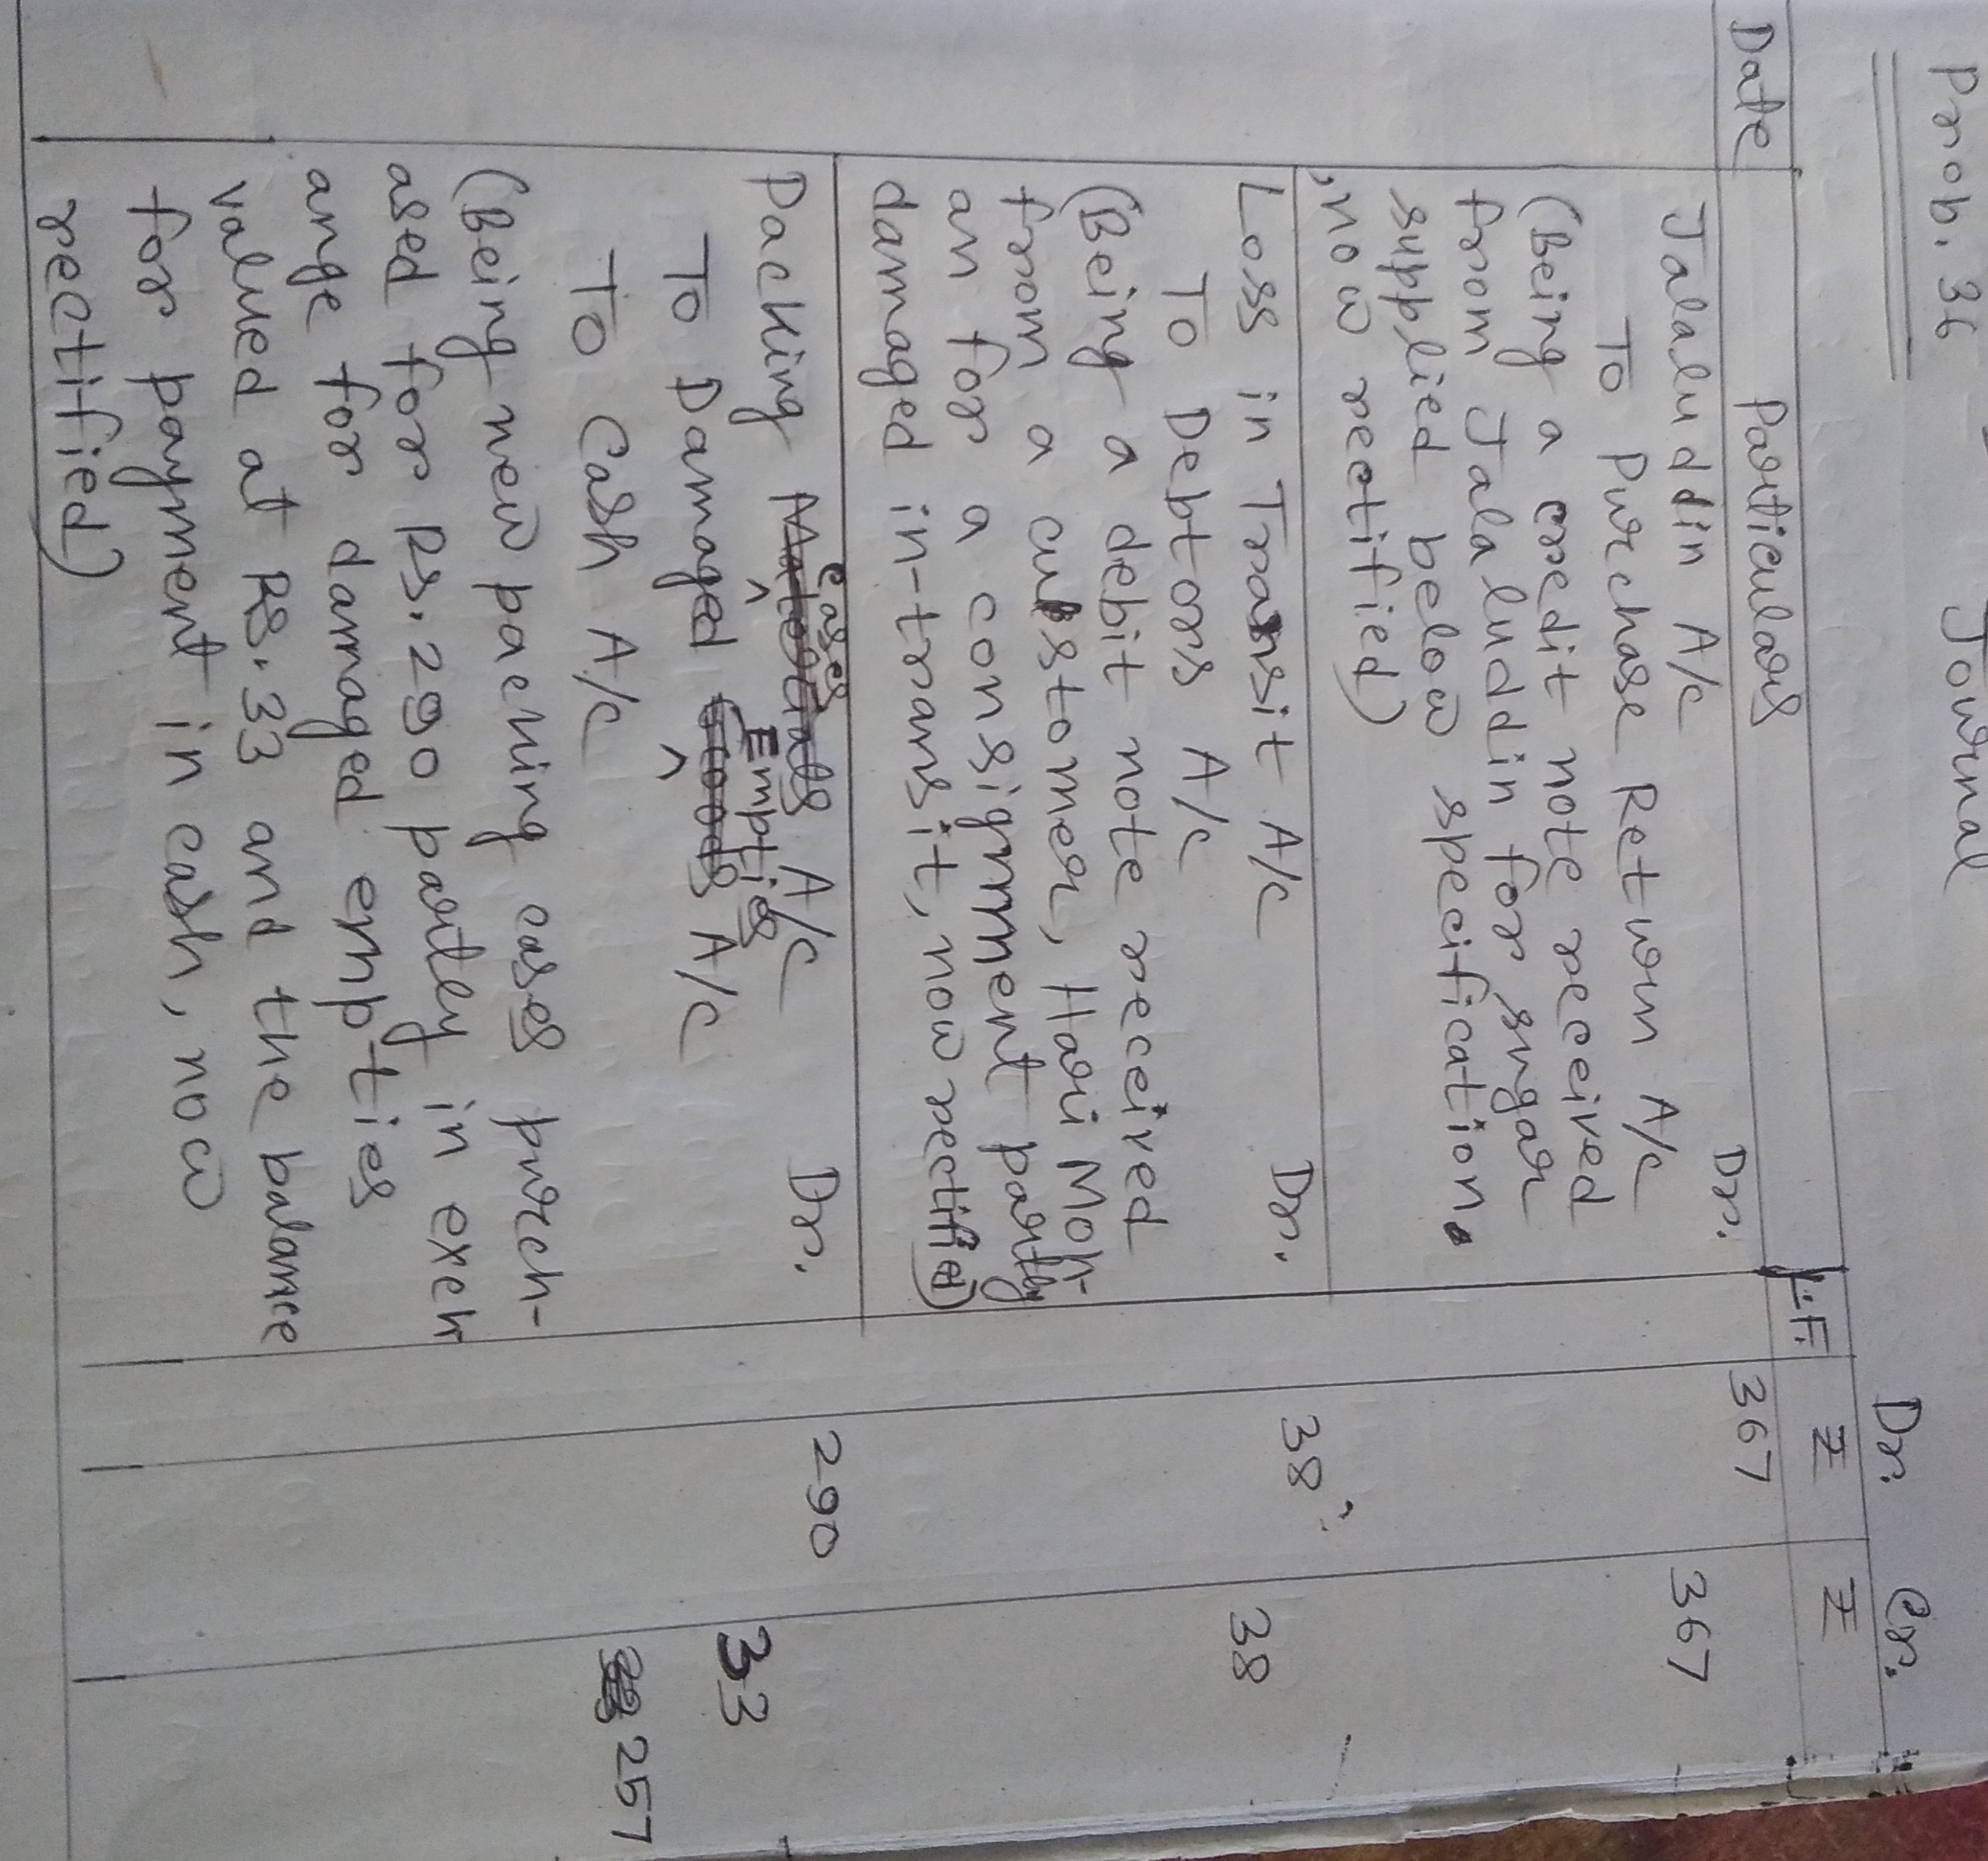 Prob. 36
Journal
Dr. Cr.
Date Particulars L.F. ₹ ₹
Jalaluddin A/c Dr. 367
To Purchase Return A/c 367
(Being a credit note received
from Jalaluddin for sugar
supplied below specification.
, now rectified)
Loss in Transit A/c Dr. 38
To Debtors A/c 38
(Being a debit note received
from a customer, Hari Moh-
an for a consignment partly
damaged in-transit, now rectified)
Packing Cases A/c Dr. 290
To Damaged Empties A/c 33
To Cash A/c 257
(Being new packing cases purch-
ased for Rs. 290 partly in exch
ange for damaged empties
valued at Rs. 33 and the balance
for payment in cash, now
rectified)